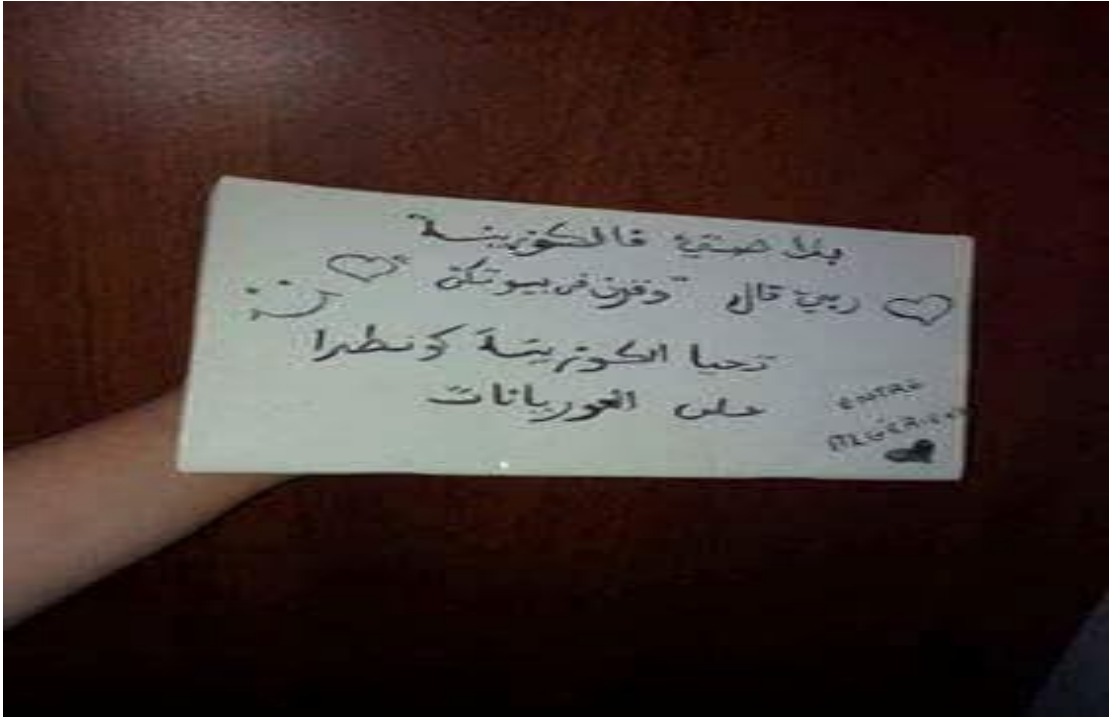 بلاصتي فالكوزينة
ربي قال "وقرن في بيوتكن"
تحيا الكوزينة كونطرا
على العوريانات
ENTRE
ALGERIEN